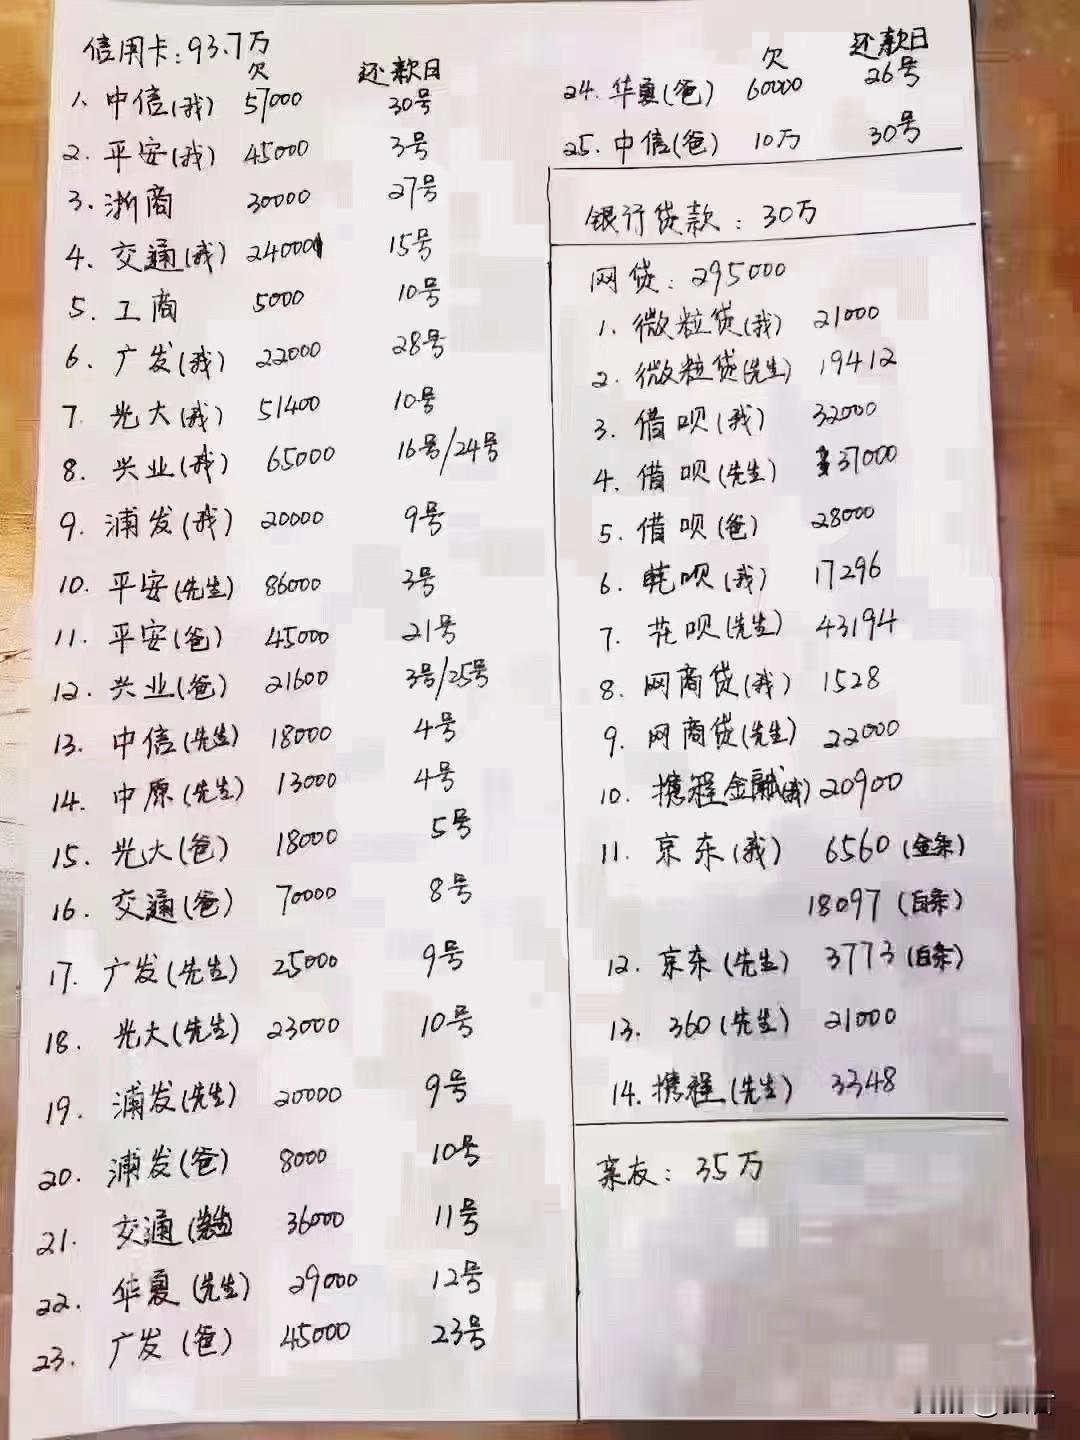 信用卡:93.7万
欠 还款日
1、中信(我) 57000 30号
2. 平安(我) 45000 3号
3. 浙商 30000 27号
4. 交通(我) 24000 15号
5. 工商 5000 10号
6. 广发(我) 22000 28号
7. 光大(我) 51400 10号
8. 兴业(我) 65000 16号/24号
9. 浦发(我) 20000 9号
10. 平安(先生) 86000 3号
11. 平安(爸) 45000 21号
12. 兴业(爸) 21600 3号/25号
13. 中信(先生) 18000 4号
14. 中原(先生) 13000 4号
15. 光大(爸) 18000 5号
16. 交通(爸) 70000 8号
17. 广发(先生) 25000 9号
18. 光大(先生) 23000 10号
19. 浦发(先生) 20000 9号
20. 浦发(爸) 8000 10号
21. 交通 36000 11号
22. 华夏(先生) 29000 12号
23. 广发(爸) 45000 23号
欠 还款日
24. 华夏(爸) 60000 26号
25. 中信(爸) 10万 30号
银行贷款:30万
网贷:295000
1. 微粒贷(我) 21000
2. 微粒贷(先生) 19412
3. 借呗(我) 32000
4. 借呗(先生) 37000
5. 借呗(爸) 28000
6. 花呗(我) 17296
7. 花呗(先生) 43194
8. 网商贷(我) 1528
9. 网商贷(先生) 22000
10. 携程金融(我) 20900
11. 京东(我) 6560(金条)
18097(白条)
12. 京东(先生) 3773(白条)
13. 360(先生) 21000
14. 携程(先生) 3348
亲友:35万